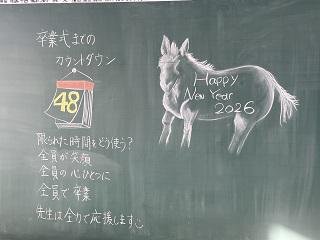 卒業式までの
カウントダウン
48
限られた時間をどう使う?
全員が笑顔
全員の心ひとつに
全員で卒業
先生は全力で応援します
Happy
New Year
2026